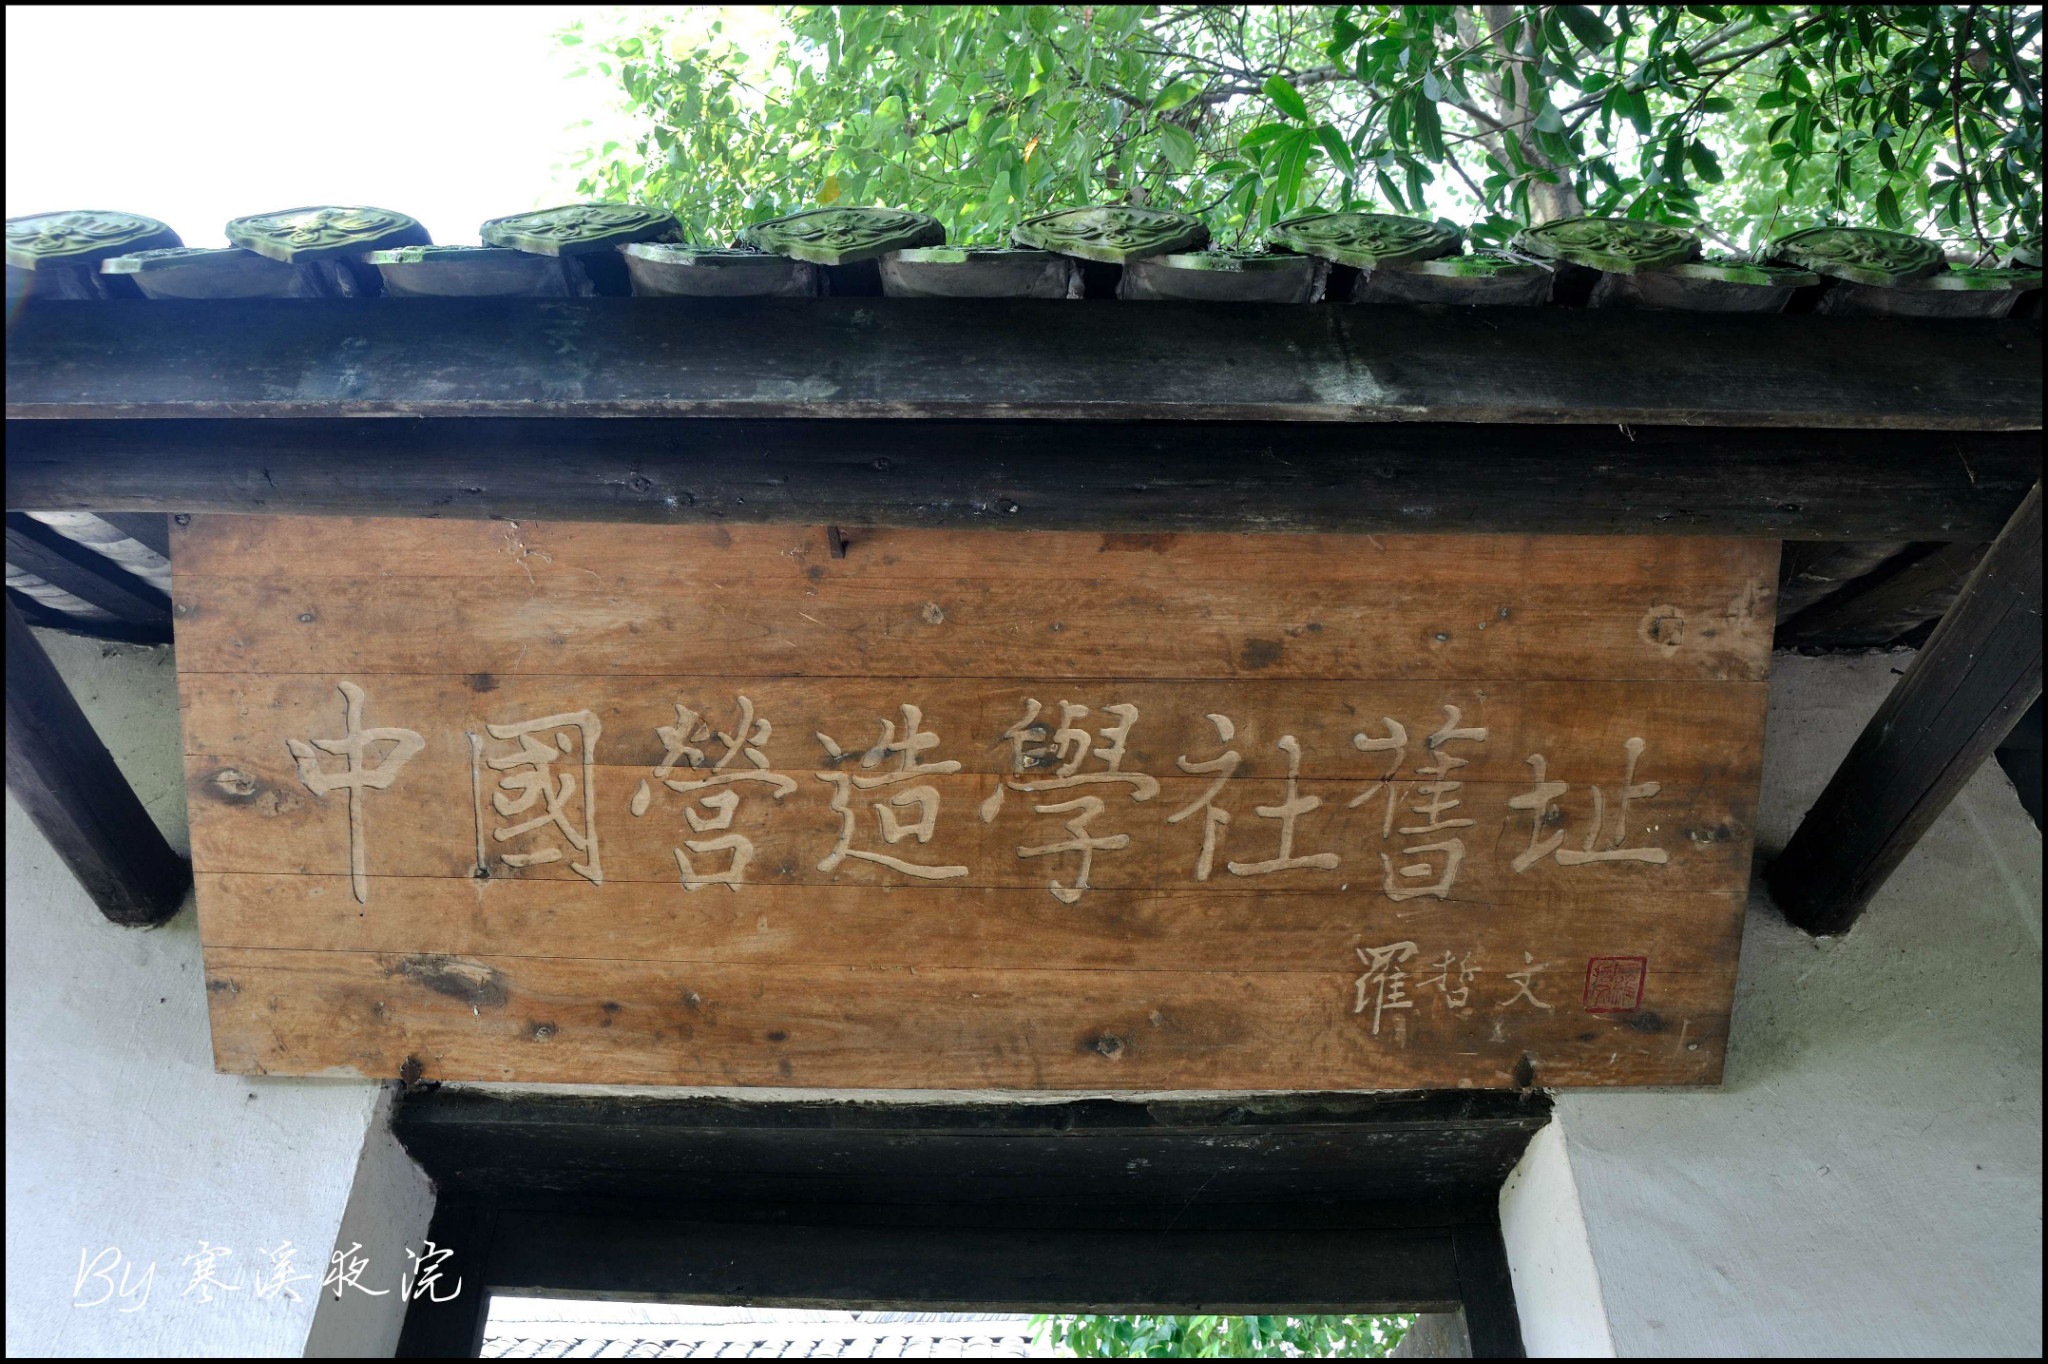 中國營造學社舊址
羅哲文
By 寒溪夜浣